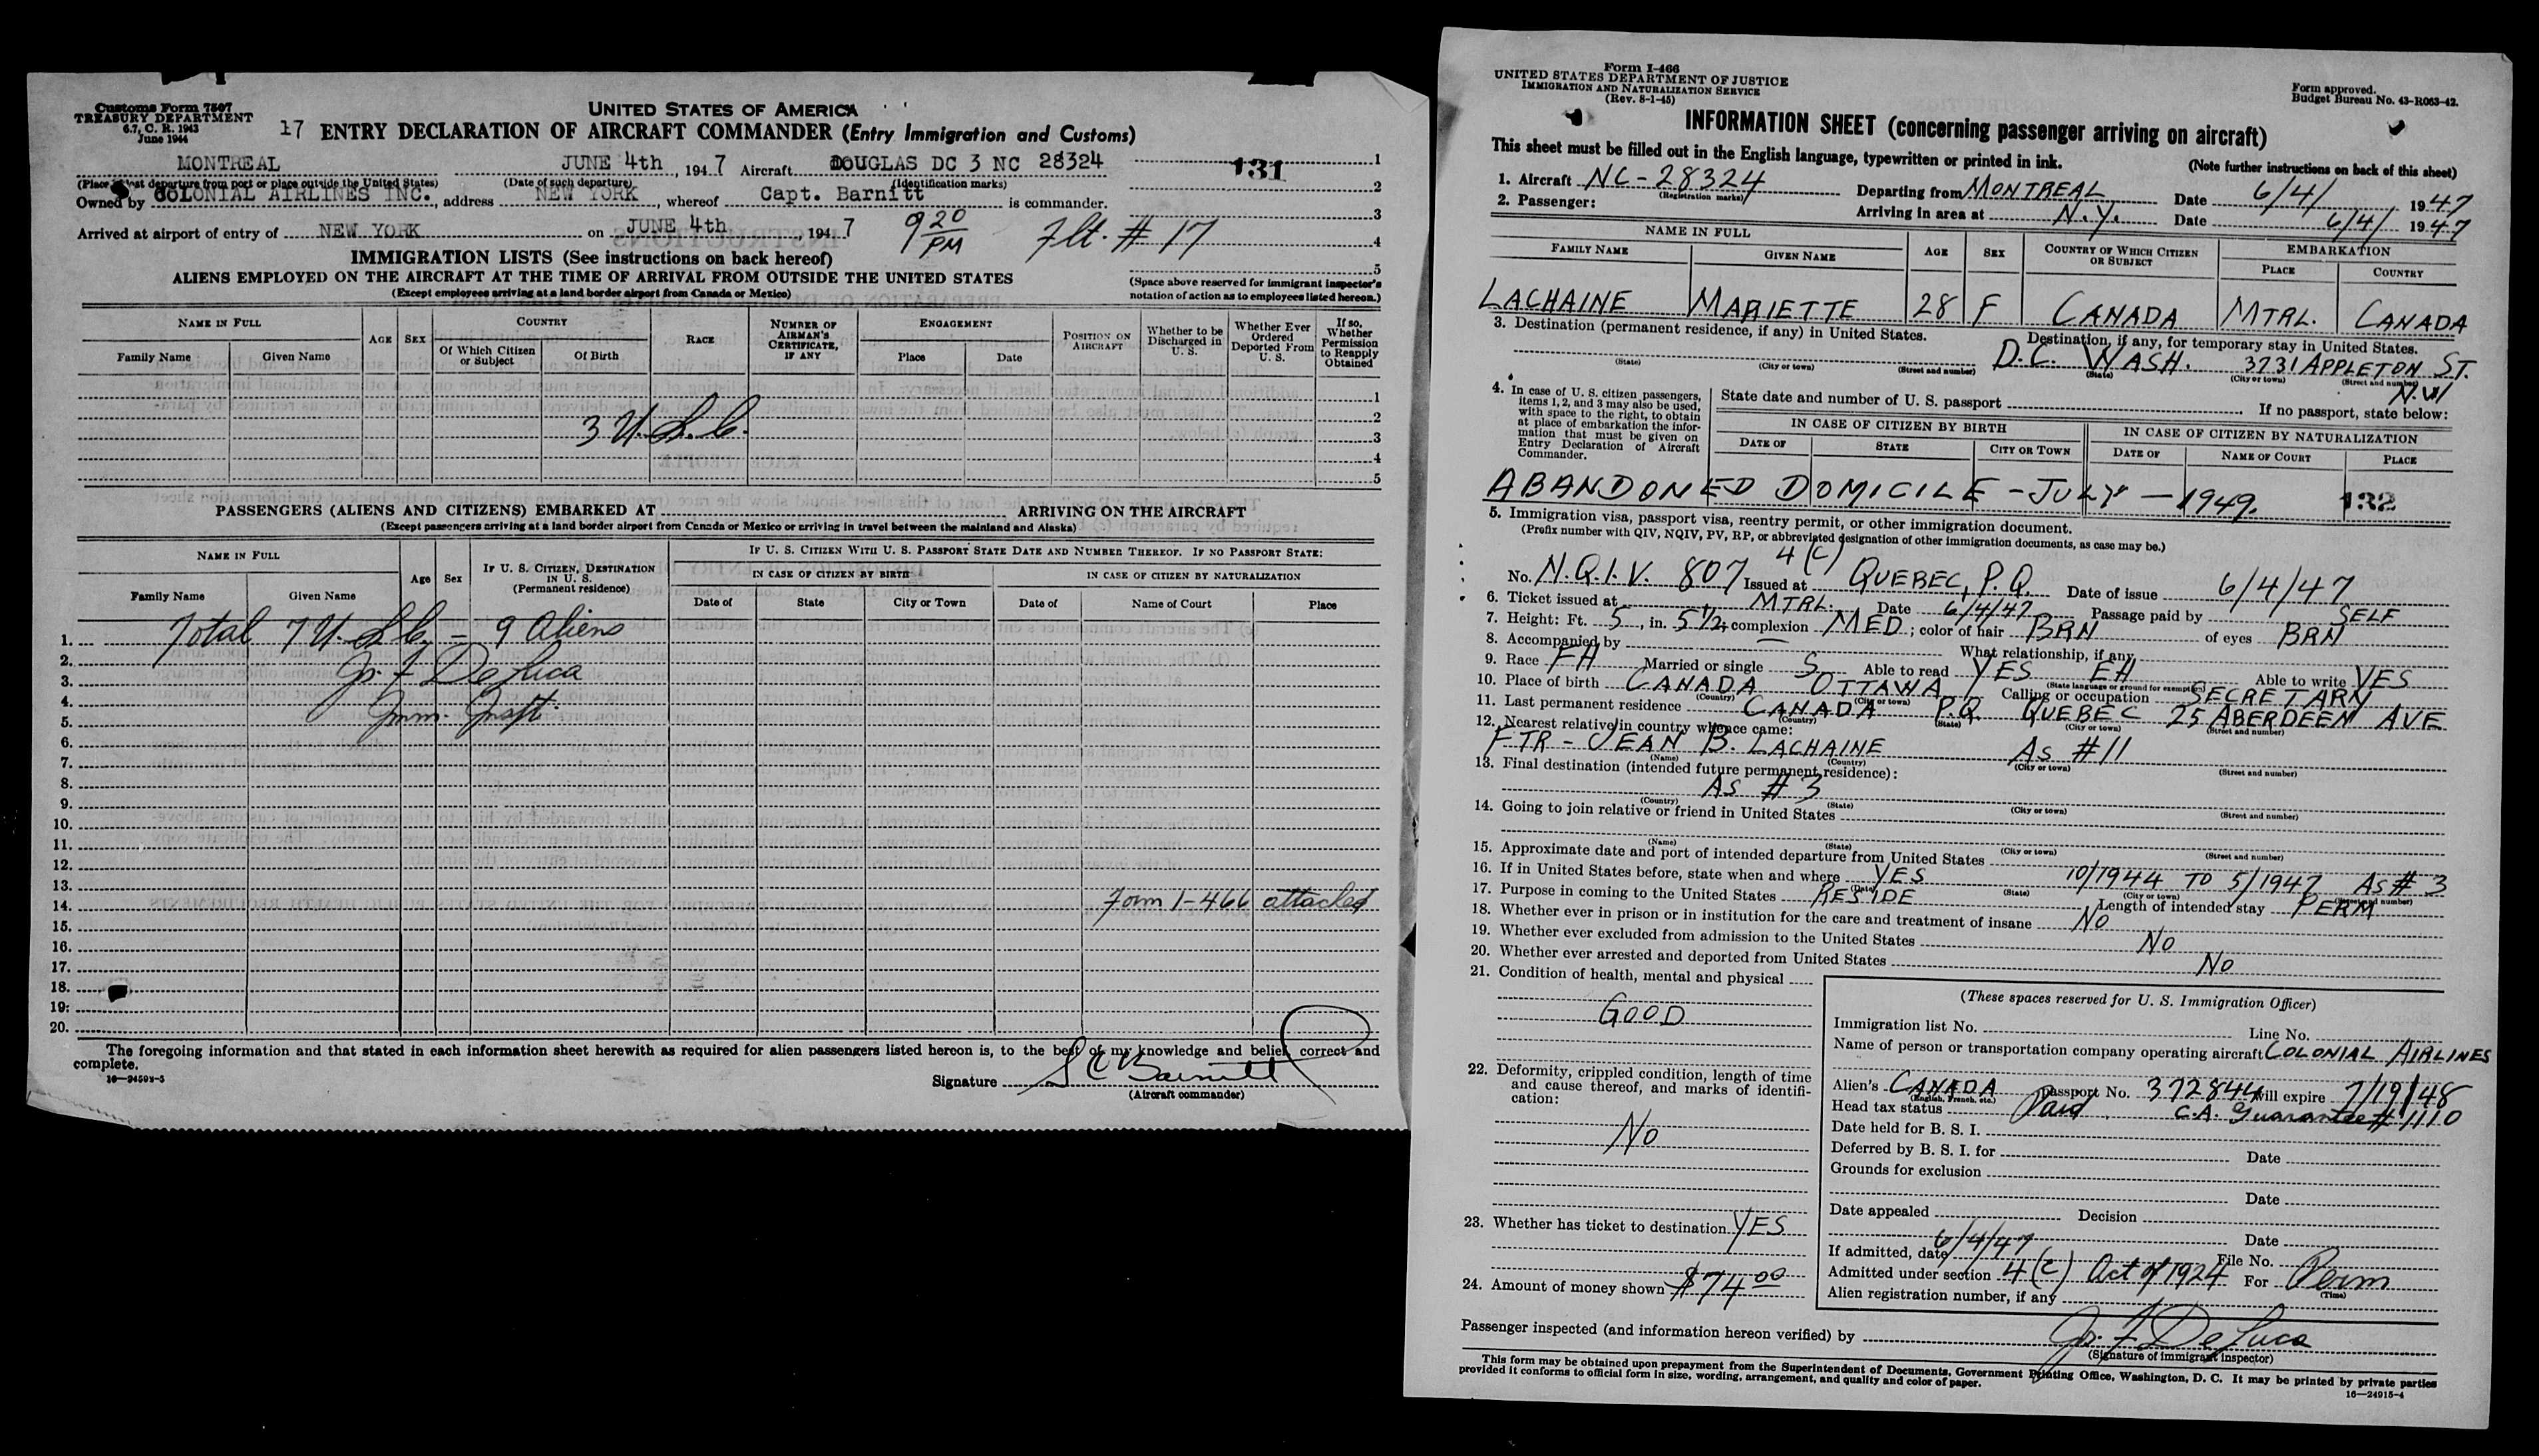 Customs Form 7507
TREASURY DEPARTMENT
6.7, C. R. 1943
June 1944
UNITED STATES OF AMERICA
17 ENTRY DECLARATION OF AIRCRAFT COMMANDER (Entry Immigration and Customs)
MONTREAL JUNE 4th, 1947 Aircraft DOUGLAS DC 3 NC 28324
(Place last departure from port or place outside the United States) (Date of such departure) (Identification marks)
Owned by COLONIAL AIRLINES INC., address NEW YORK, whereof Capt. Barnitt is commander.
Arrived at airport of entry of NEW YORK on JUNE 4th, 1947 9 20 PM Flt. # 17
131
1
2
3
4
5
IMMIGRATION LISTS (See instructions on back hereof)
ALIENS EMPLOYED ON THE AIRCRAFT AT THE TIME OF ARRIVAL FROM OUTSIDE THE UNITED STATES
(Except employees arriving at a land border airport from Canada or Mexico)
(Space above reserved for immigrant inspector's notation of action as to employees listed hereon.)
NAME IN FULL
Family Name Given Name
AGE SEX
COUNTRY
Of Which Citizen or Subject Of Birth
RACE
NUMBER OF AIRMAN'S CERTIFICATE, IF ANY
ENGAGEMENT
Place Date
POSITION ON AIRCRAFT
Whether to be Discharged in U. S.
Whether Ever Ordered Deported From U. S.
If so, Whether Permission to Reapply Obtained
1
2
3 U. S. C. 3
4
5
PASSENGERS (ALIENS AND CITIZENS) EMBARKED AT ARRIVING ON THE AIRCRAFT
(Except passengers arriving at a land border airport from Canada or Mexico or arriving in travel between the mainland and Alaska)
NAME IN FULL
Family Name Given Name
Age Sex
IF U. S. CITIZEN, DESTINATION IN U. S. (Permanent residence)
IF U. S. CITIZEN WITH U. S. PASSPORT STATE DATE AND NUMBER THEREOF. IF NO PASSPORT STATE:
IN CASE OF CITIZEN BY BIRTH IN CASE OF CITIZEN BY NATURALIZATION
Date of State City or Town Date of Name of Court Place
1. Total 7 U. S. C. - 9 Aliens
2.
3. Jr. F De Luca
4.
5. Imm. Inspt.
6.
7.
8.
9.
10.
11.
12.
13.
14. Form 1-466 attached
15.
16.
17.
18.
19.
20.
The foregoing information and that stated in each information sheet herewith as required for alien passengers listed hereon is, to the best of my knowledge and belief, correct and
complete.
Signature S C Barnitt
(Aircraft commander)
Form I-466
UNITED STATES DEPARTMENT OF JUSTICE
IMMIGRATION AND NATURALIZATION SERVICE
(Rev. 8-1-45)
Form approved.
Budget Bureau No. 43-R063-42.
INFORMATION SHEET (concerning passenger arriving on aircraft)
This sheet must be filled out in the English language, typewritten or printed in ink. (Note further instructions on back of this sheet)
1. Aircraft NC-28324 Departing from MONTREAL Date 6/4/ 1947
(Registration marks)
2. Passenger: Arriving in area at N.Y. Date 6/4/ 1947
NAME IN FULL
FAMILY NAME GIVEN NAME AGE SEX COUNTRY OF WHICH CITIZEN OR SUBJECT EMBARKATION
PLACE COUNTRY
LACHAINE MARIETTE 28 F CANADA MTRL. CANADA
3. Destination (permanent residence, if any) in United States. Destination, if any, for temporary stay in United States.
D.C. WASH. 3731 APPLETON ST. N.W
(State) (City or town) (Street and number) (State) (City or town) (Street and number)
4. In case of U. S. citizen passengers, items 1, 2, and 3 may also be used, with space to the right, to obtain at place of embarkation the information that must be given on Entry Declaration of Aircraft Commander.
State date and number of U. S. passport If no passport, state below:
IN CASE OF CITIZEN BY BIRTH IN CASE OF CITIZEN BY NATURALIZATION
DATE OF STATE CITY OR TOWN DATE OF NAME OF COURT PLACE
ABANDONED DOMICILE - JULY - 1949. 132
5. Immigration visa, passport visa, reentry permit, or other immigration document.
(Prefix number with QIV, NQIV, PV, RP, or abbreviated designation of other immigration documents, as case may be.)
4 (c)
No. N.Q.I.V. 807 Issued at QUEBEC, P.Q. Date of issue 6/4/47
6. Ticket issued at MTRL. Date 6/4/47 Passage paid by SELF
7. Height: Ft. 5, in. 5 1/2; complexion MED; color of hair BRN of eyes BRN
8. Accompanied by — What relationship, if any
9. Race FH Married or single S Able to read YES EH Able to write YES
(State language or ground for exemption)
10. Place of birth CANADA OTTAWA Calling or occupation SECRETARY
(Country) (City or town)
11. Last permanent residence CANADA P.Q. QUEBEC 25 ABERDEEN AVE.
(Country) (State) (City or town) (Street and number)
12. Nearest relative in country whence came:
FTR - JEAN B. LACHAINE As #11
(Name) (Country) (City or town) (Street and number)
13. Final destination (intended future permanent residence):
As # 3
(Country) (State) (City or town) (Street and number)
14. Going to join relative or friend in United States
(Name) (State) (City or town) (Street and number)
15. Approximate date and port of intended departure from United States
16. If in United States before, state when and where YES 10/1944 TO 5/1947 As # 3
(Date) (State) (City or town) (Street and number)
17. Purpose in coming to the United States RESIDE Length of intended stay PERM
18. Whether ever in prison or in institution for the care and treatment of insane No
19. Whether ever excluded from admission to the United States No
20. Whether ever arrested and deported from United States No
21. Condition of health, mental and physical
GOOD
22. Deformity, crippled condition, length of time and cause thereof, and marks of identification:
No
23. Whether has ticket to destination YES
24. Amount of money shown $74 00
(These spaces reserved for U. S. Immigration Officer)
Immigration list No. Line No.
Name of person or transportation company operating aircraft COLONIAL AIRLINES
Alien's CANADA passport No. 372844 will expire 7/19/48
(English, French, etc.)
Head tax status Paid C.A. Guarantee # 1110
Date held for B. S. I.
Deferred by B. S. I. for Date
Grounds for exclusion
Date
Date appealed Decision
Date
If admitted, date 6/4/47 File No.
Admitted under section 4(c) Act of 1924 For Perm
(Time)
Alien registration number, if any
Passenger inspected (and information hereon verified) by Jr. F De Luca
(Signature of immigrant inspector)
This form may be obtained upon prepayment from the Superintendent of Documents, Government Printing Office, Washington, D. C. It may be printed by private parties
provided it conforms to official form in size, wording, arrangement, and quality and color of paper.
16—24915-4